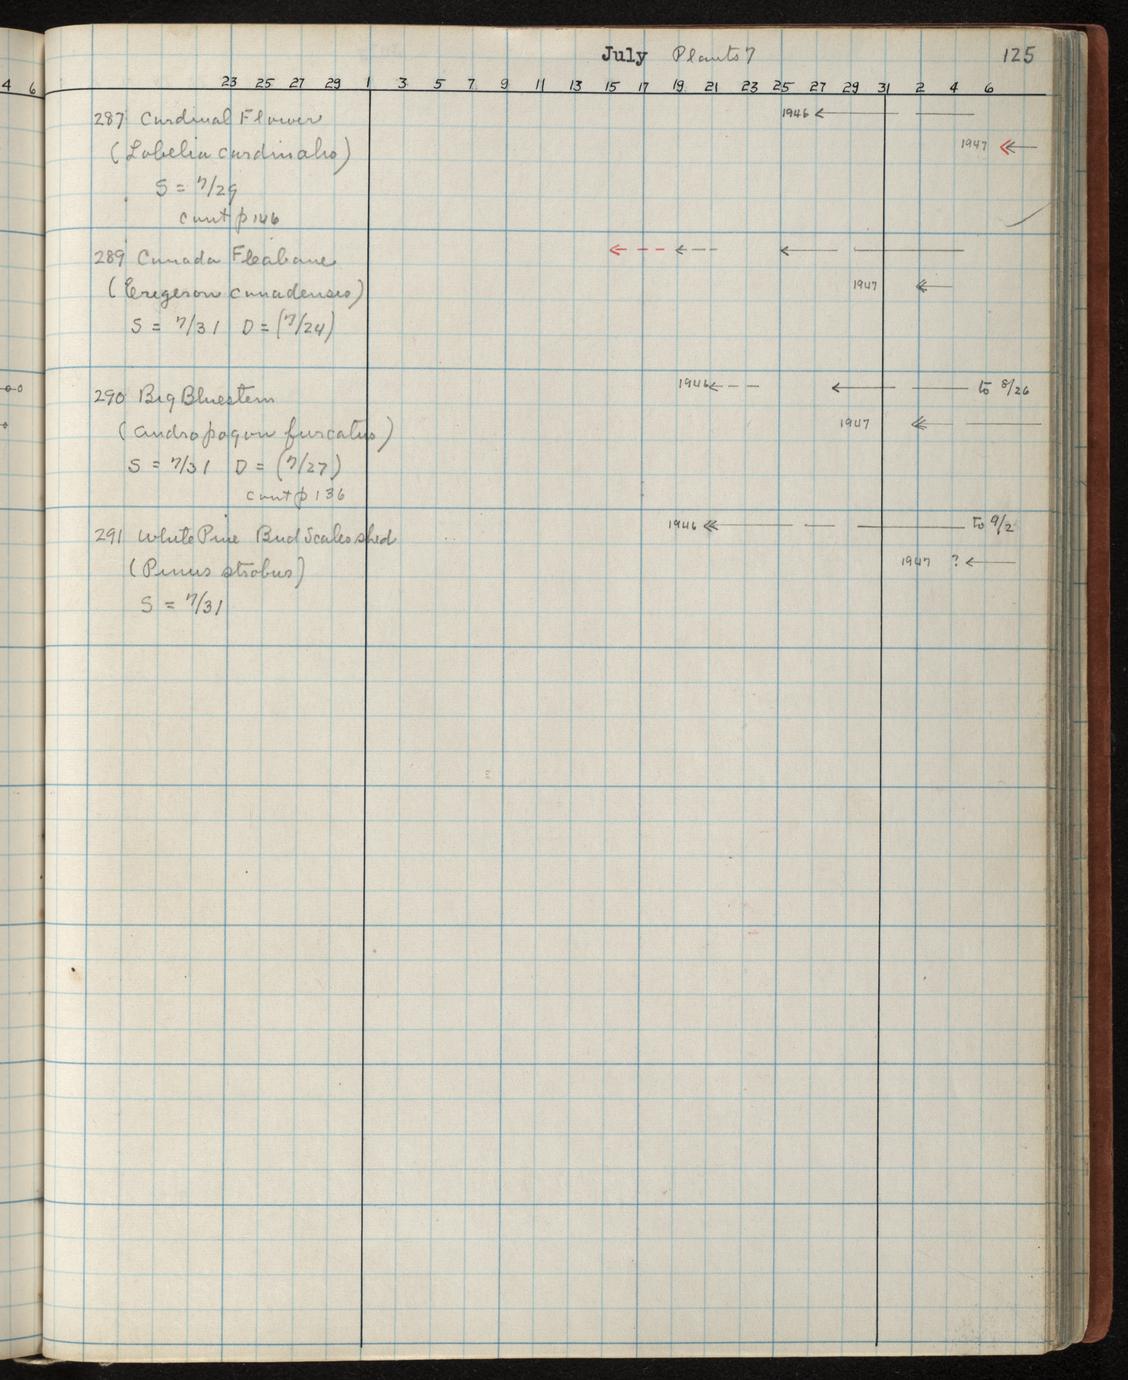 4 6
July Plants 7 125
23 25 27 29 1 3 5 7 9 11 13 15 17 19 21 23 25 27 29 31 2 4 6
287 Cardinal Flower 1946
(Lobelia cardinalis) 1947
S = 7/29
cont p 146
289 Canada Fleabane
(Erigeron canadensis) 1947
S = 7/31 D = (7/24)
290 Big Bluestem 1946 to 8/26
(Andropogon furcatus) 1947
S = 7/31 D = (7/27)
cont p 136
291 White Pine Bud Scales shed 1946 to 9/2
(Pinus strobus) 1947 ?
S = 7/31